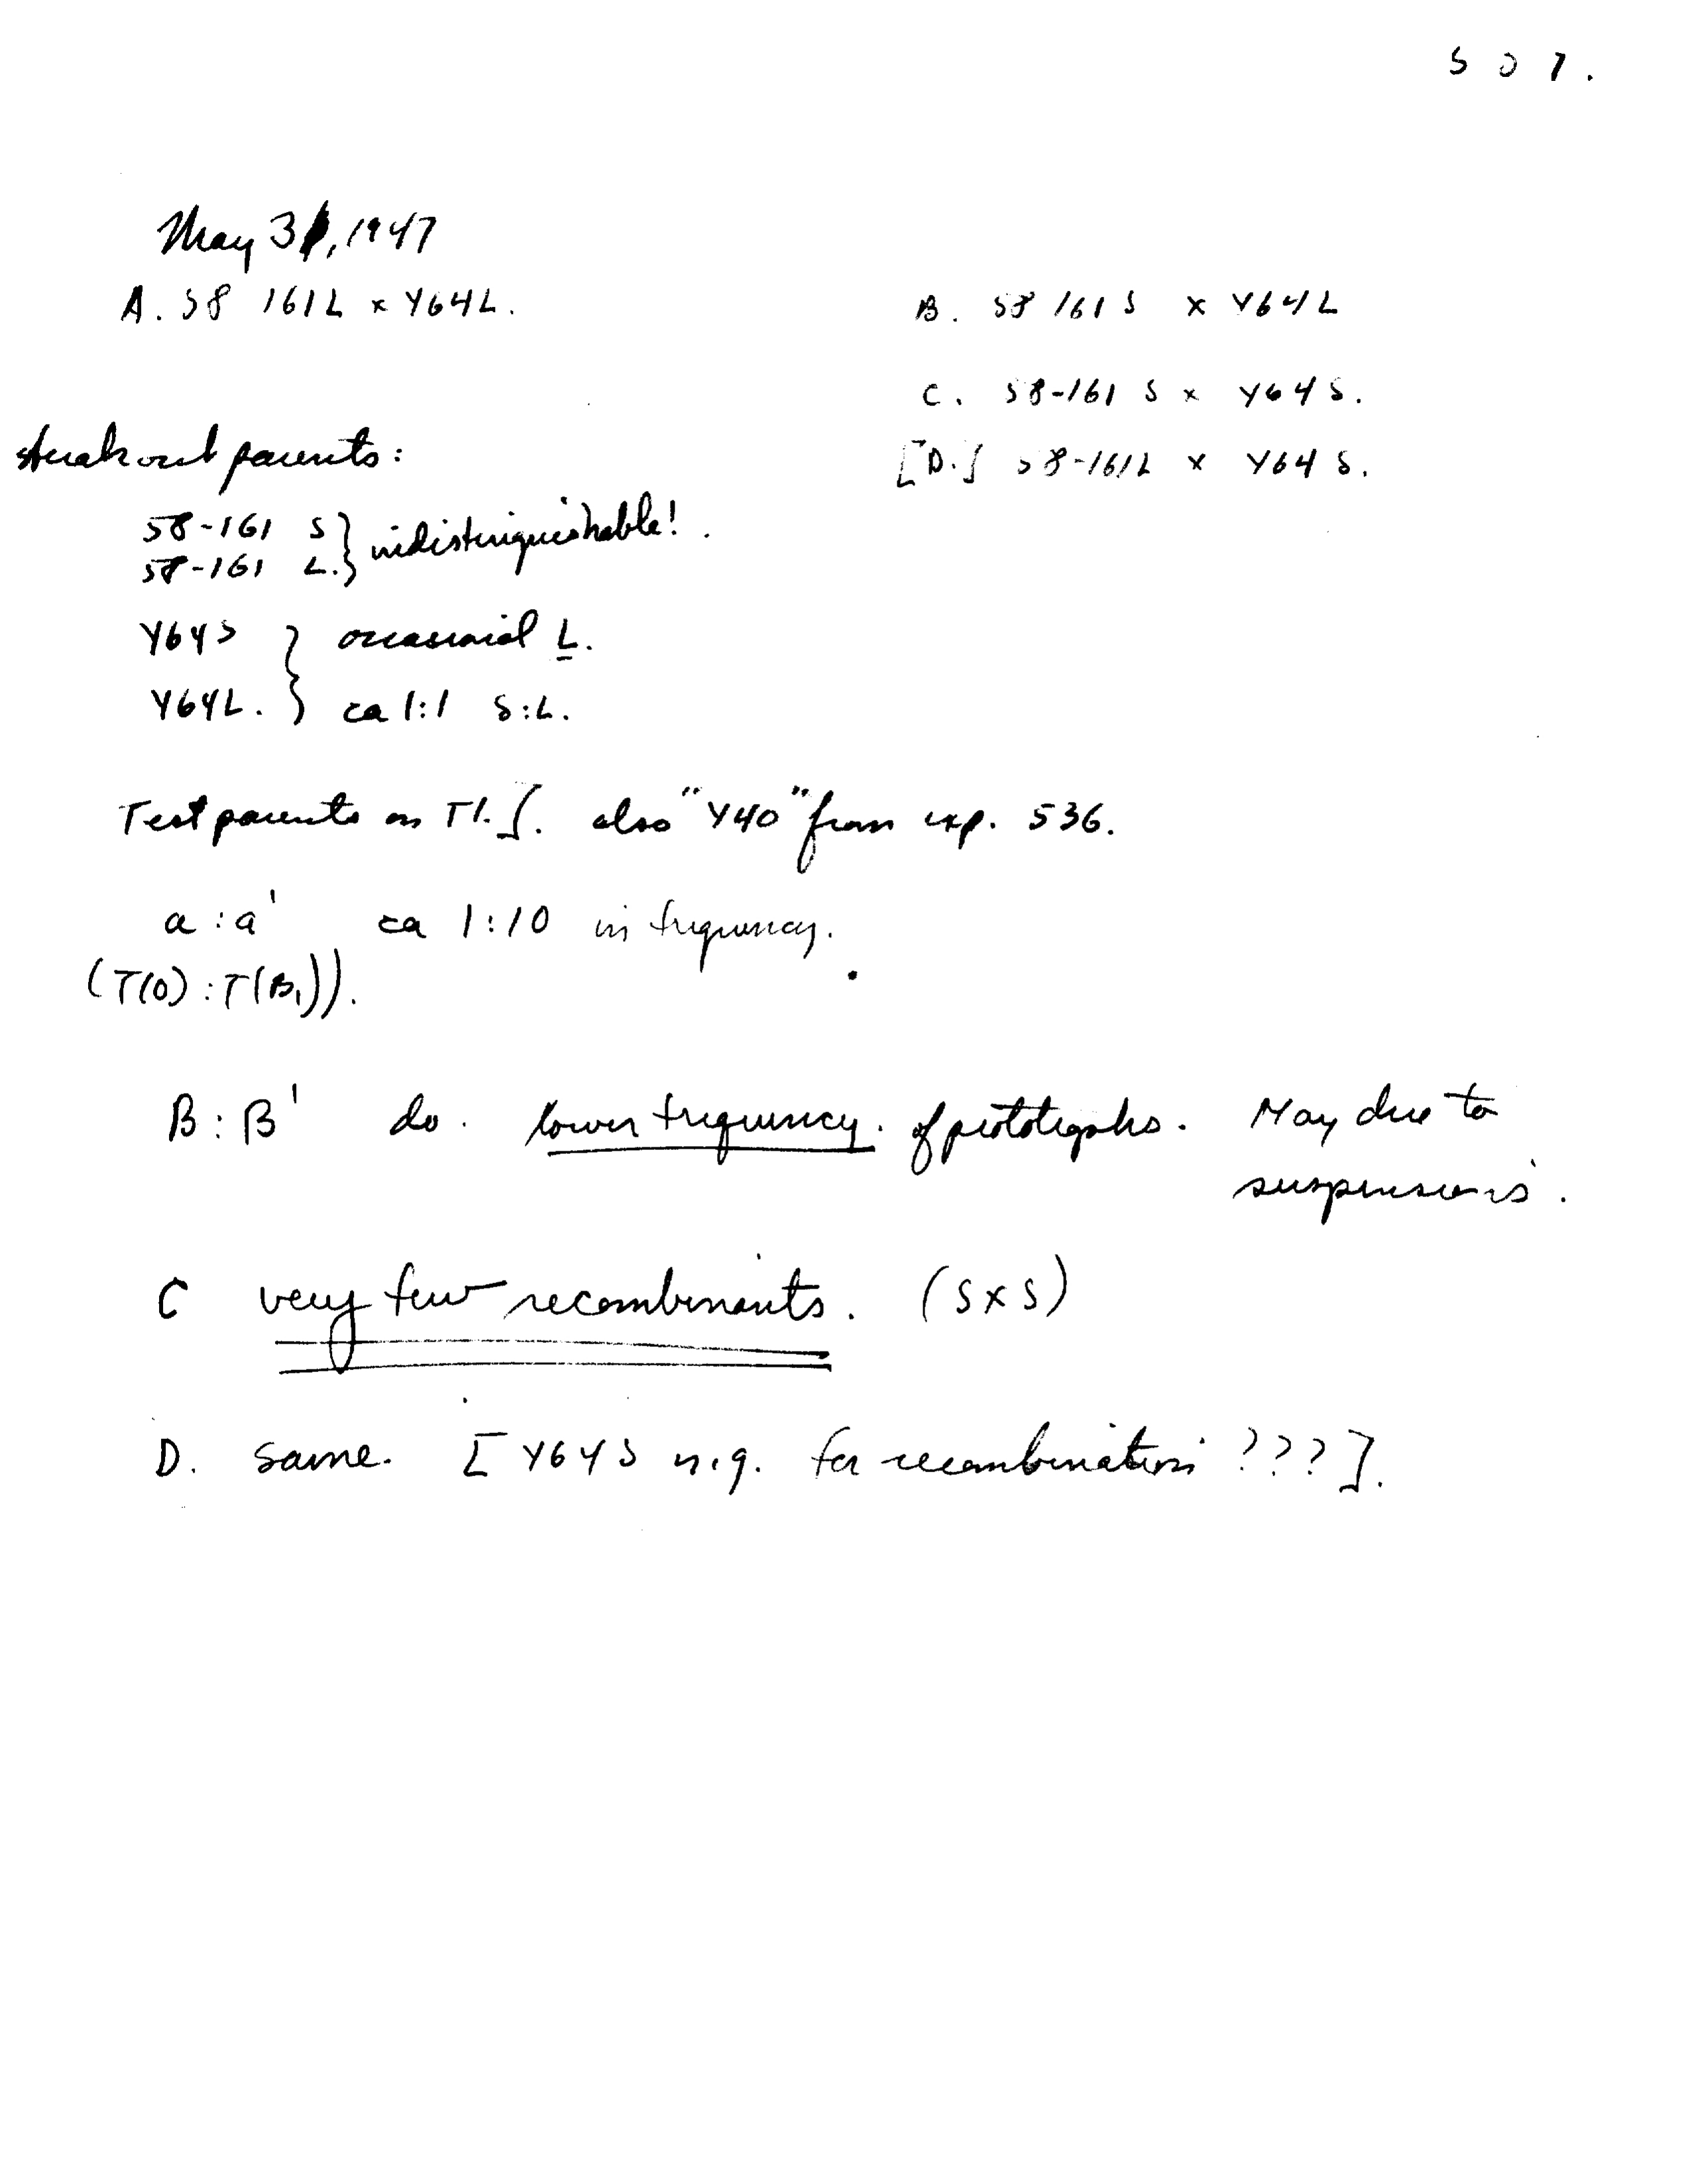 507.
May 31, 1947
A. 58 161L x Y64L.
B. 58 161 S x Y64L
C. 58-161 S x Y64 S.
[D.] 58-161L x Y64 S.
Streak out parents:
58-161 S } indistinguishable!.
58-161 L. }
Y64S } occasional L.
Y64L. } ca 1:1 S:L.
Test parents on T1. ∫. also "Y40" from exp. 536.
a : a' ca 1:10 in frequency.
(T(0) : T(B₁)).
B : B' do. lower frequency. of prototrophs. May due to
suspensions.
C very few recombinants. (S x S)
D. same. [Y64S n.g. for recombination ???].